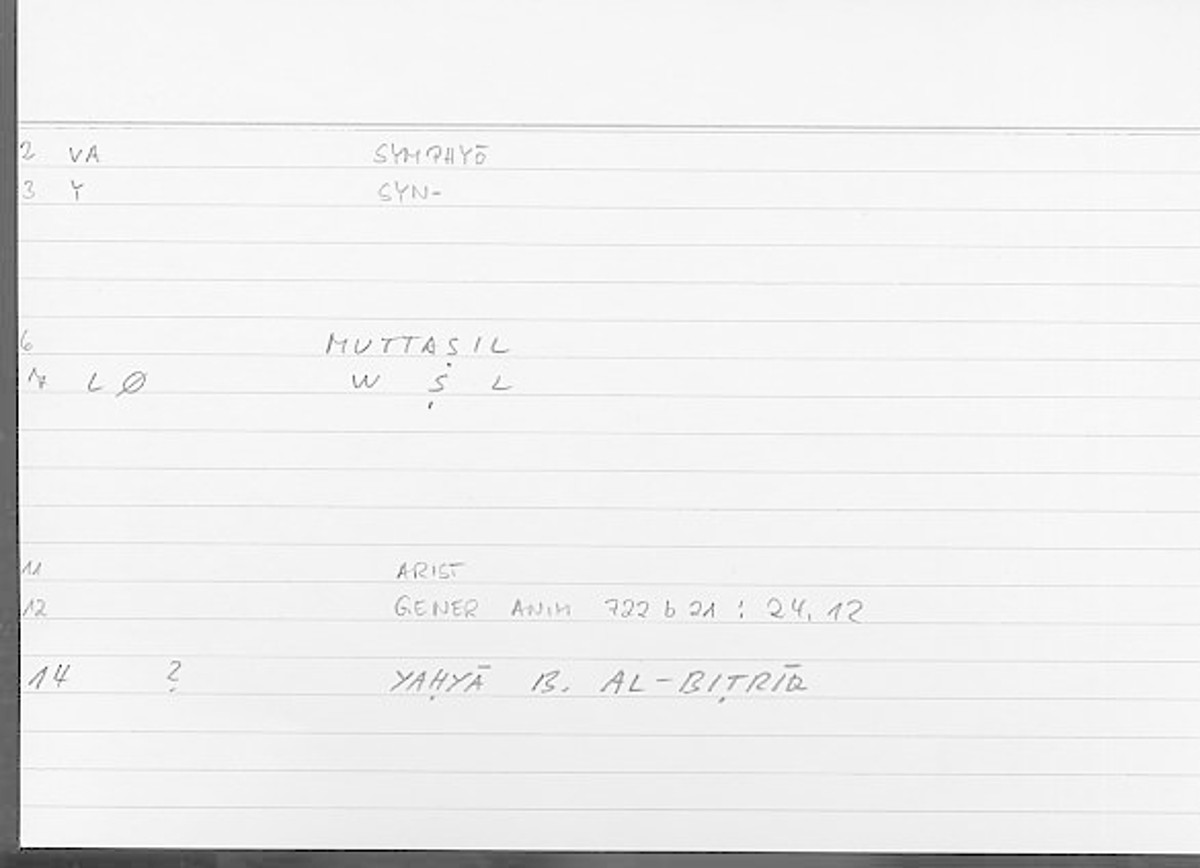 2 VA SYMPHYŌ
3 Y SYN-
6 MUTTAṢIL
7 L Ø W Ṣ L
11 ARIST
12 GENER ANIM 722 b 21 : 24, 12
14 ? YAḤYĀ B. AL-BIṬRĪQ